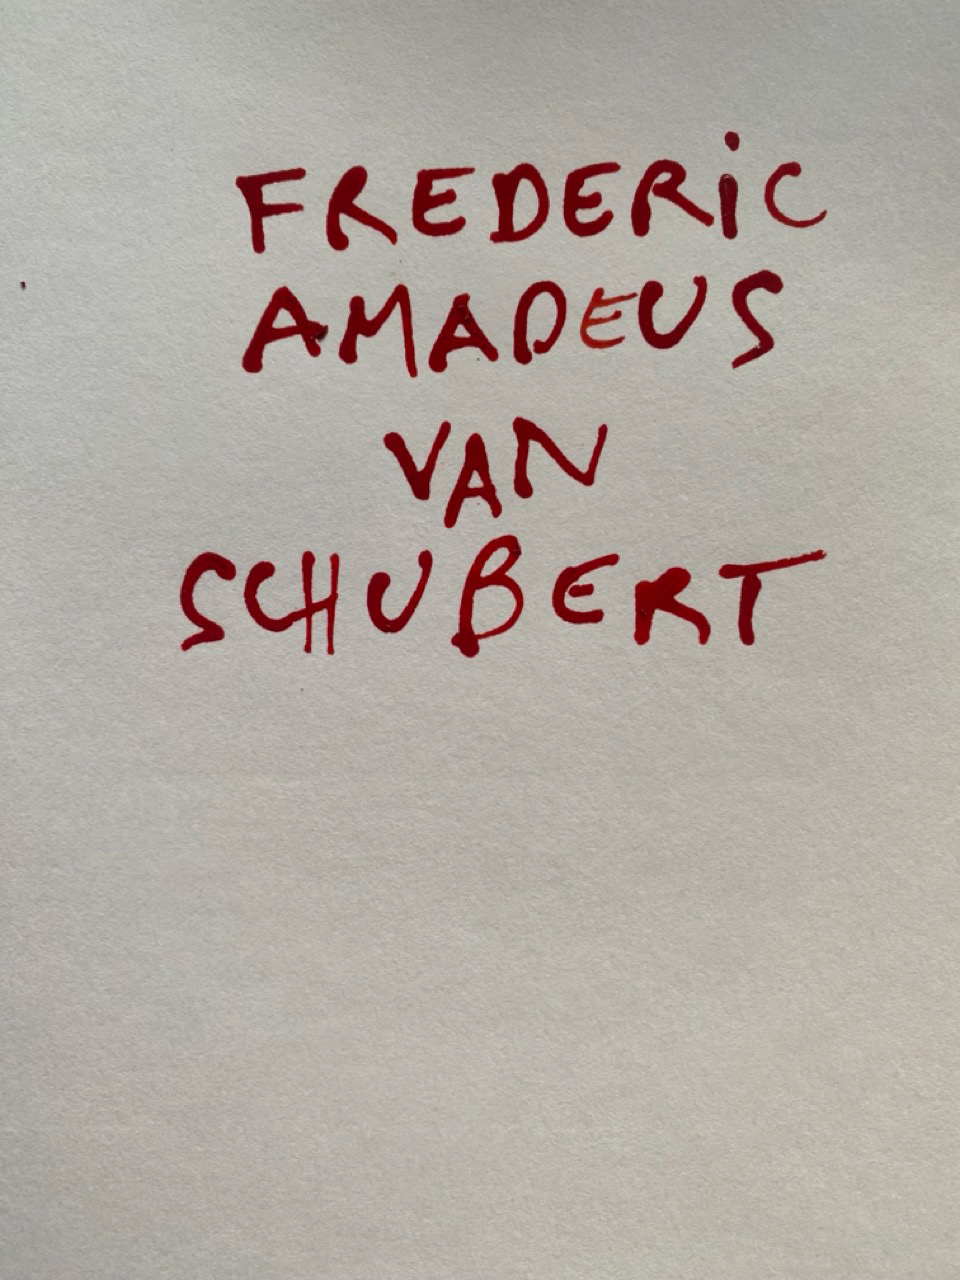 FREDERiC
AMADEUS
VAN
SCHUBERT